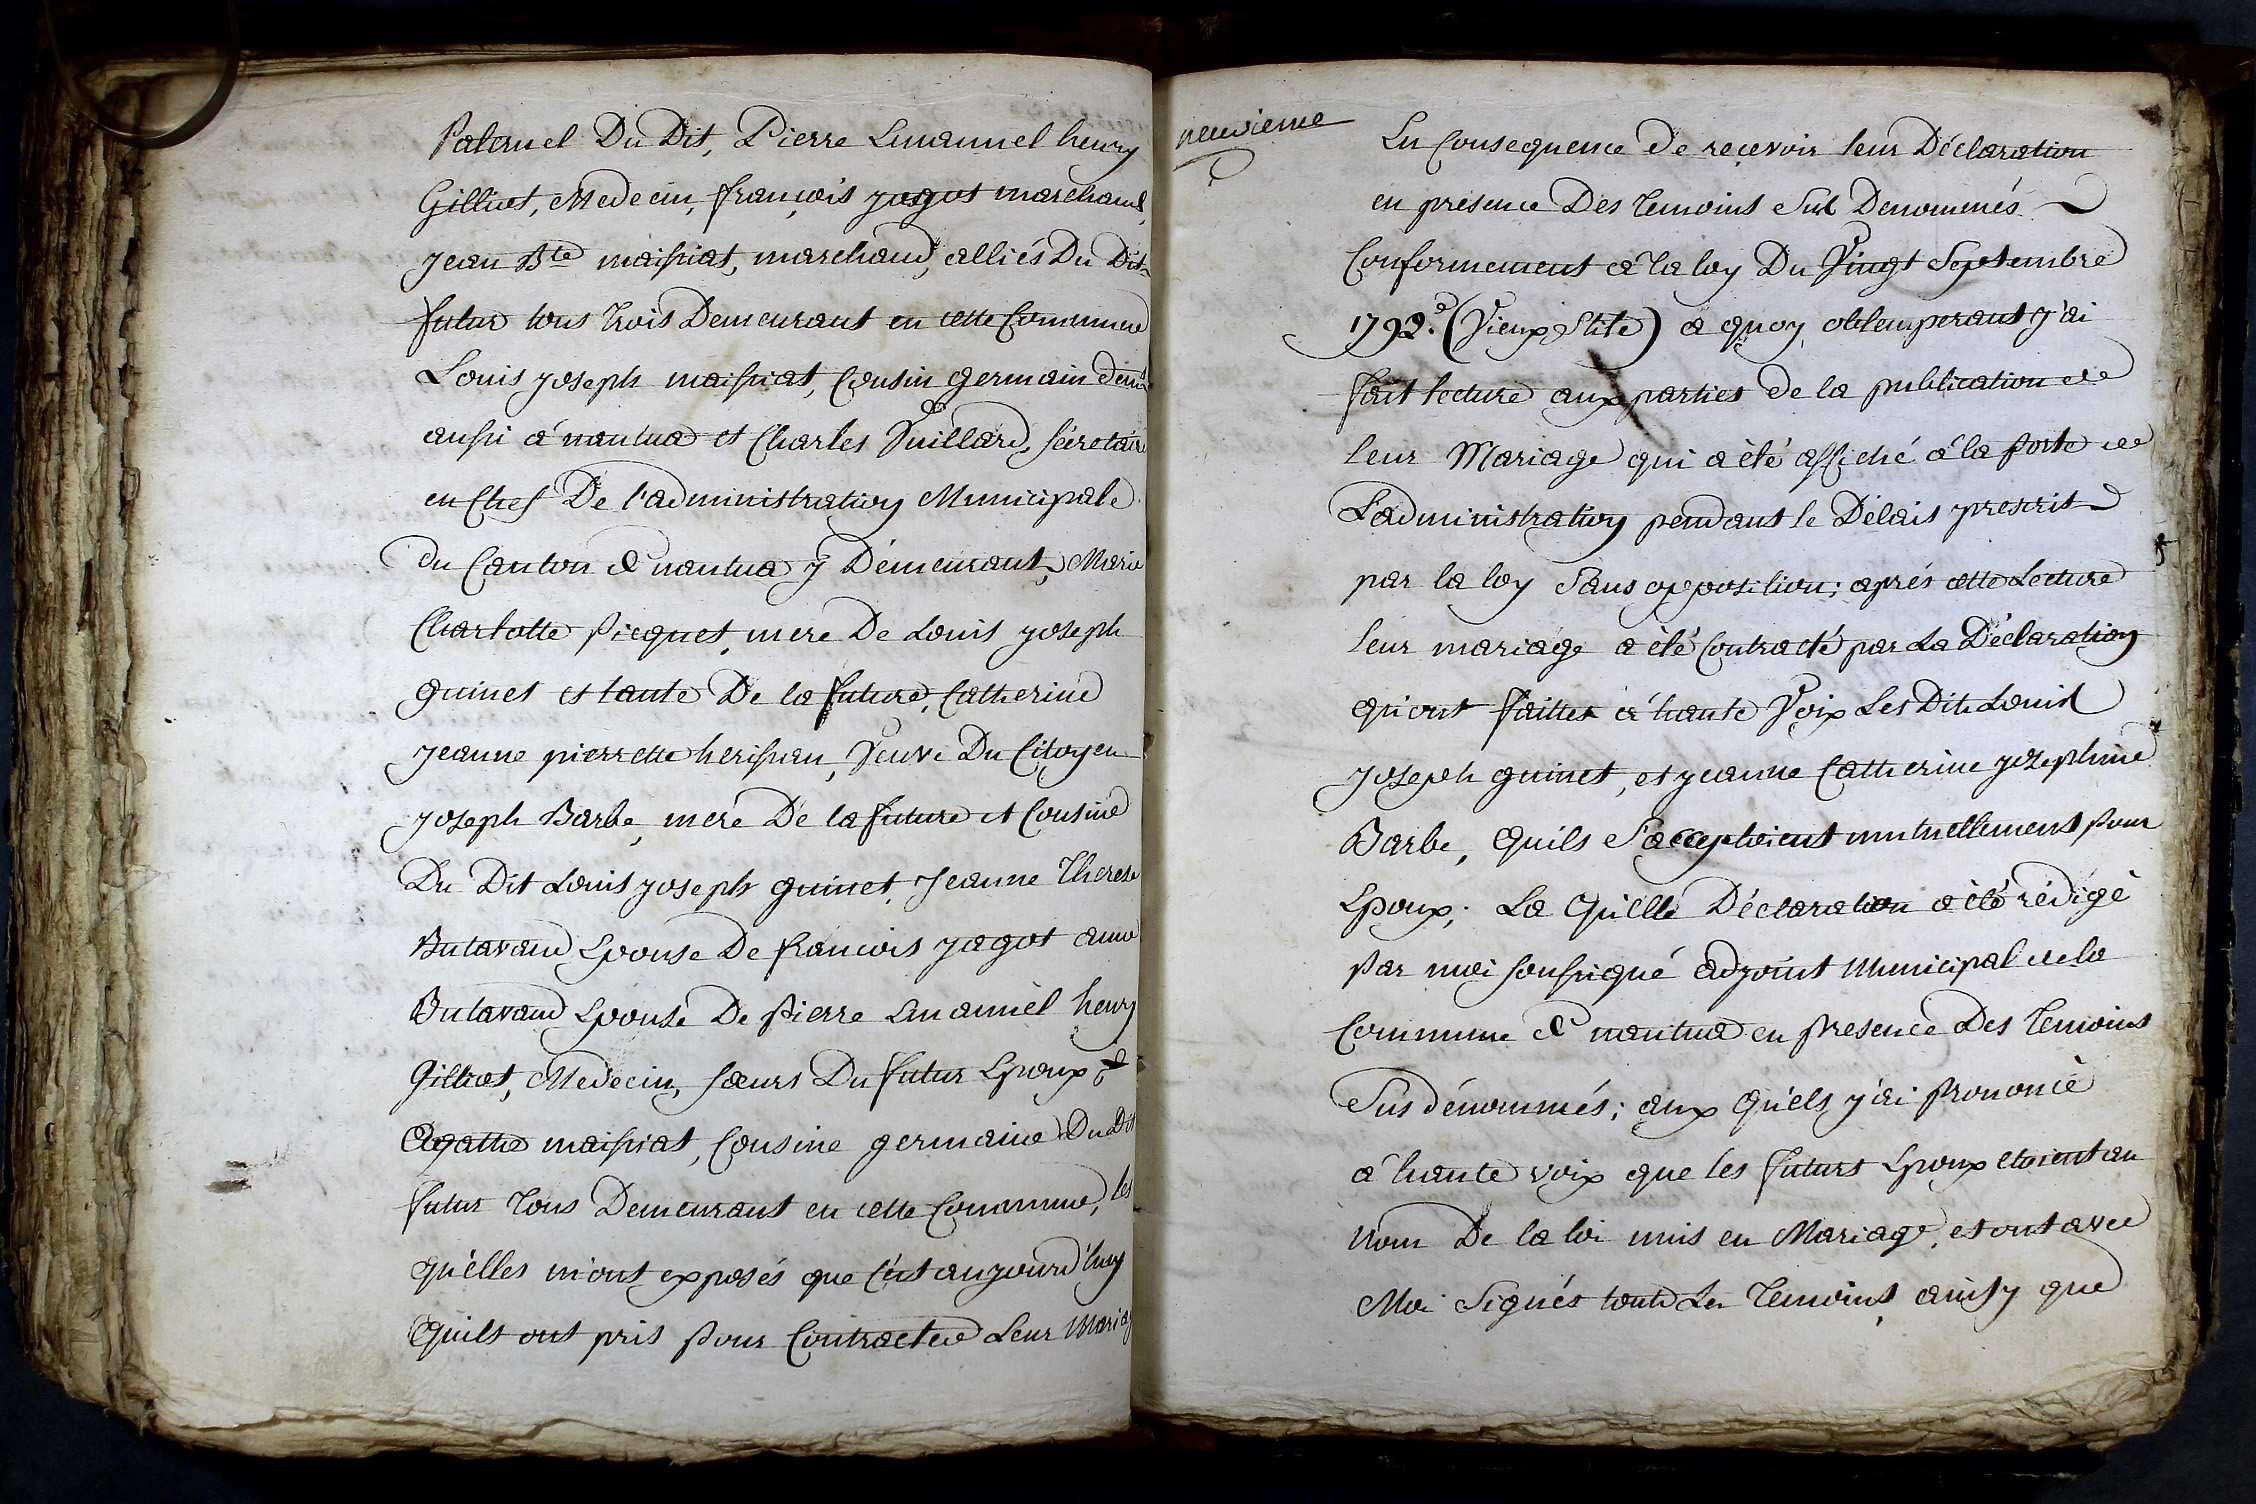 Paternel Du Dit, Pierre Emanuel henry
Gilliot, Medecin, françois jagot marchand
jean Bte maissiat, marchand, alliés Du Dit
futur tous trois Demeurant en cette Commune
Louis joseph maissiat, Cousin germain demt
aussi a nantua et Charles Juillard, sécretaire
en Chef De l'administration Municipale
du Canton de nantua y Démeurant, Marie
Charlotte picquet, mere De Louis joseph
guinet et tante De la future, Catherine
jeanne pierrette herissieu, Veuve Du Citoyen
joseph Barbe, mere De la future et Cousine
Du Dit Louis joseph guinet, Jeanne Therese
Butavand Epouse De francois jagot anne
Butavand Epouse De pierre Emanuel henry
Gilliot, Medecin, sœurs Du futur Epoux &
Agathe maissiat, Cousine germaine Du Dit
futur Tous Demeurant en cette Commune, les
quelles m'ont exposés que C'est aujourd'huy
Quils ont pris pour Contracter Leur Mariage
neuvieme
En Consequence De reçevoir leur Déclaration
en présence Des temoins Sus Denommés
Conformement a la loy Du Vingt Septembre
1792.e (Vieux Stile) a quoy obtemperant j'ai
fait lecture aux parties de la publication de
leur Mariage qui a èté affiché a la porte de
L'administration pendant le Délais prescrit
par la loy Sans opposition; aprés cette Lecture
leur mariage a èté Contracté par La Déclaration
qu'ont faittes a haute Voix Les Dits Louis
joseph guinet, et jeanne Catherine josephine
Barbe, Quils S'acceptoient mutuellement pour
Epoux; La Quelle Déclaration a èté rédigé
par moi soussigné adjoint Municipal de la
Commune de nantua en presence Des Temoins
Sus dénommés; aux quels j'ai prononcé
a haute voix que les futurs Epoux etoient au
nom De la loi unis en Mariage, et ont avec
Moi Signés touts Les Temoins, ainsy que